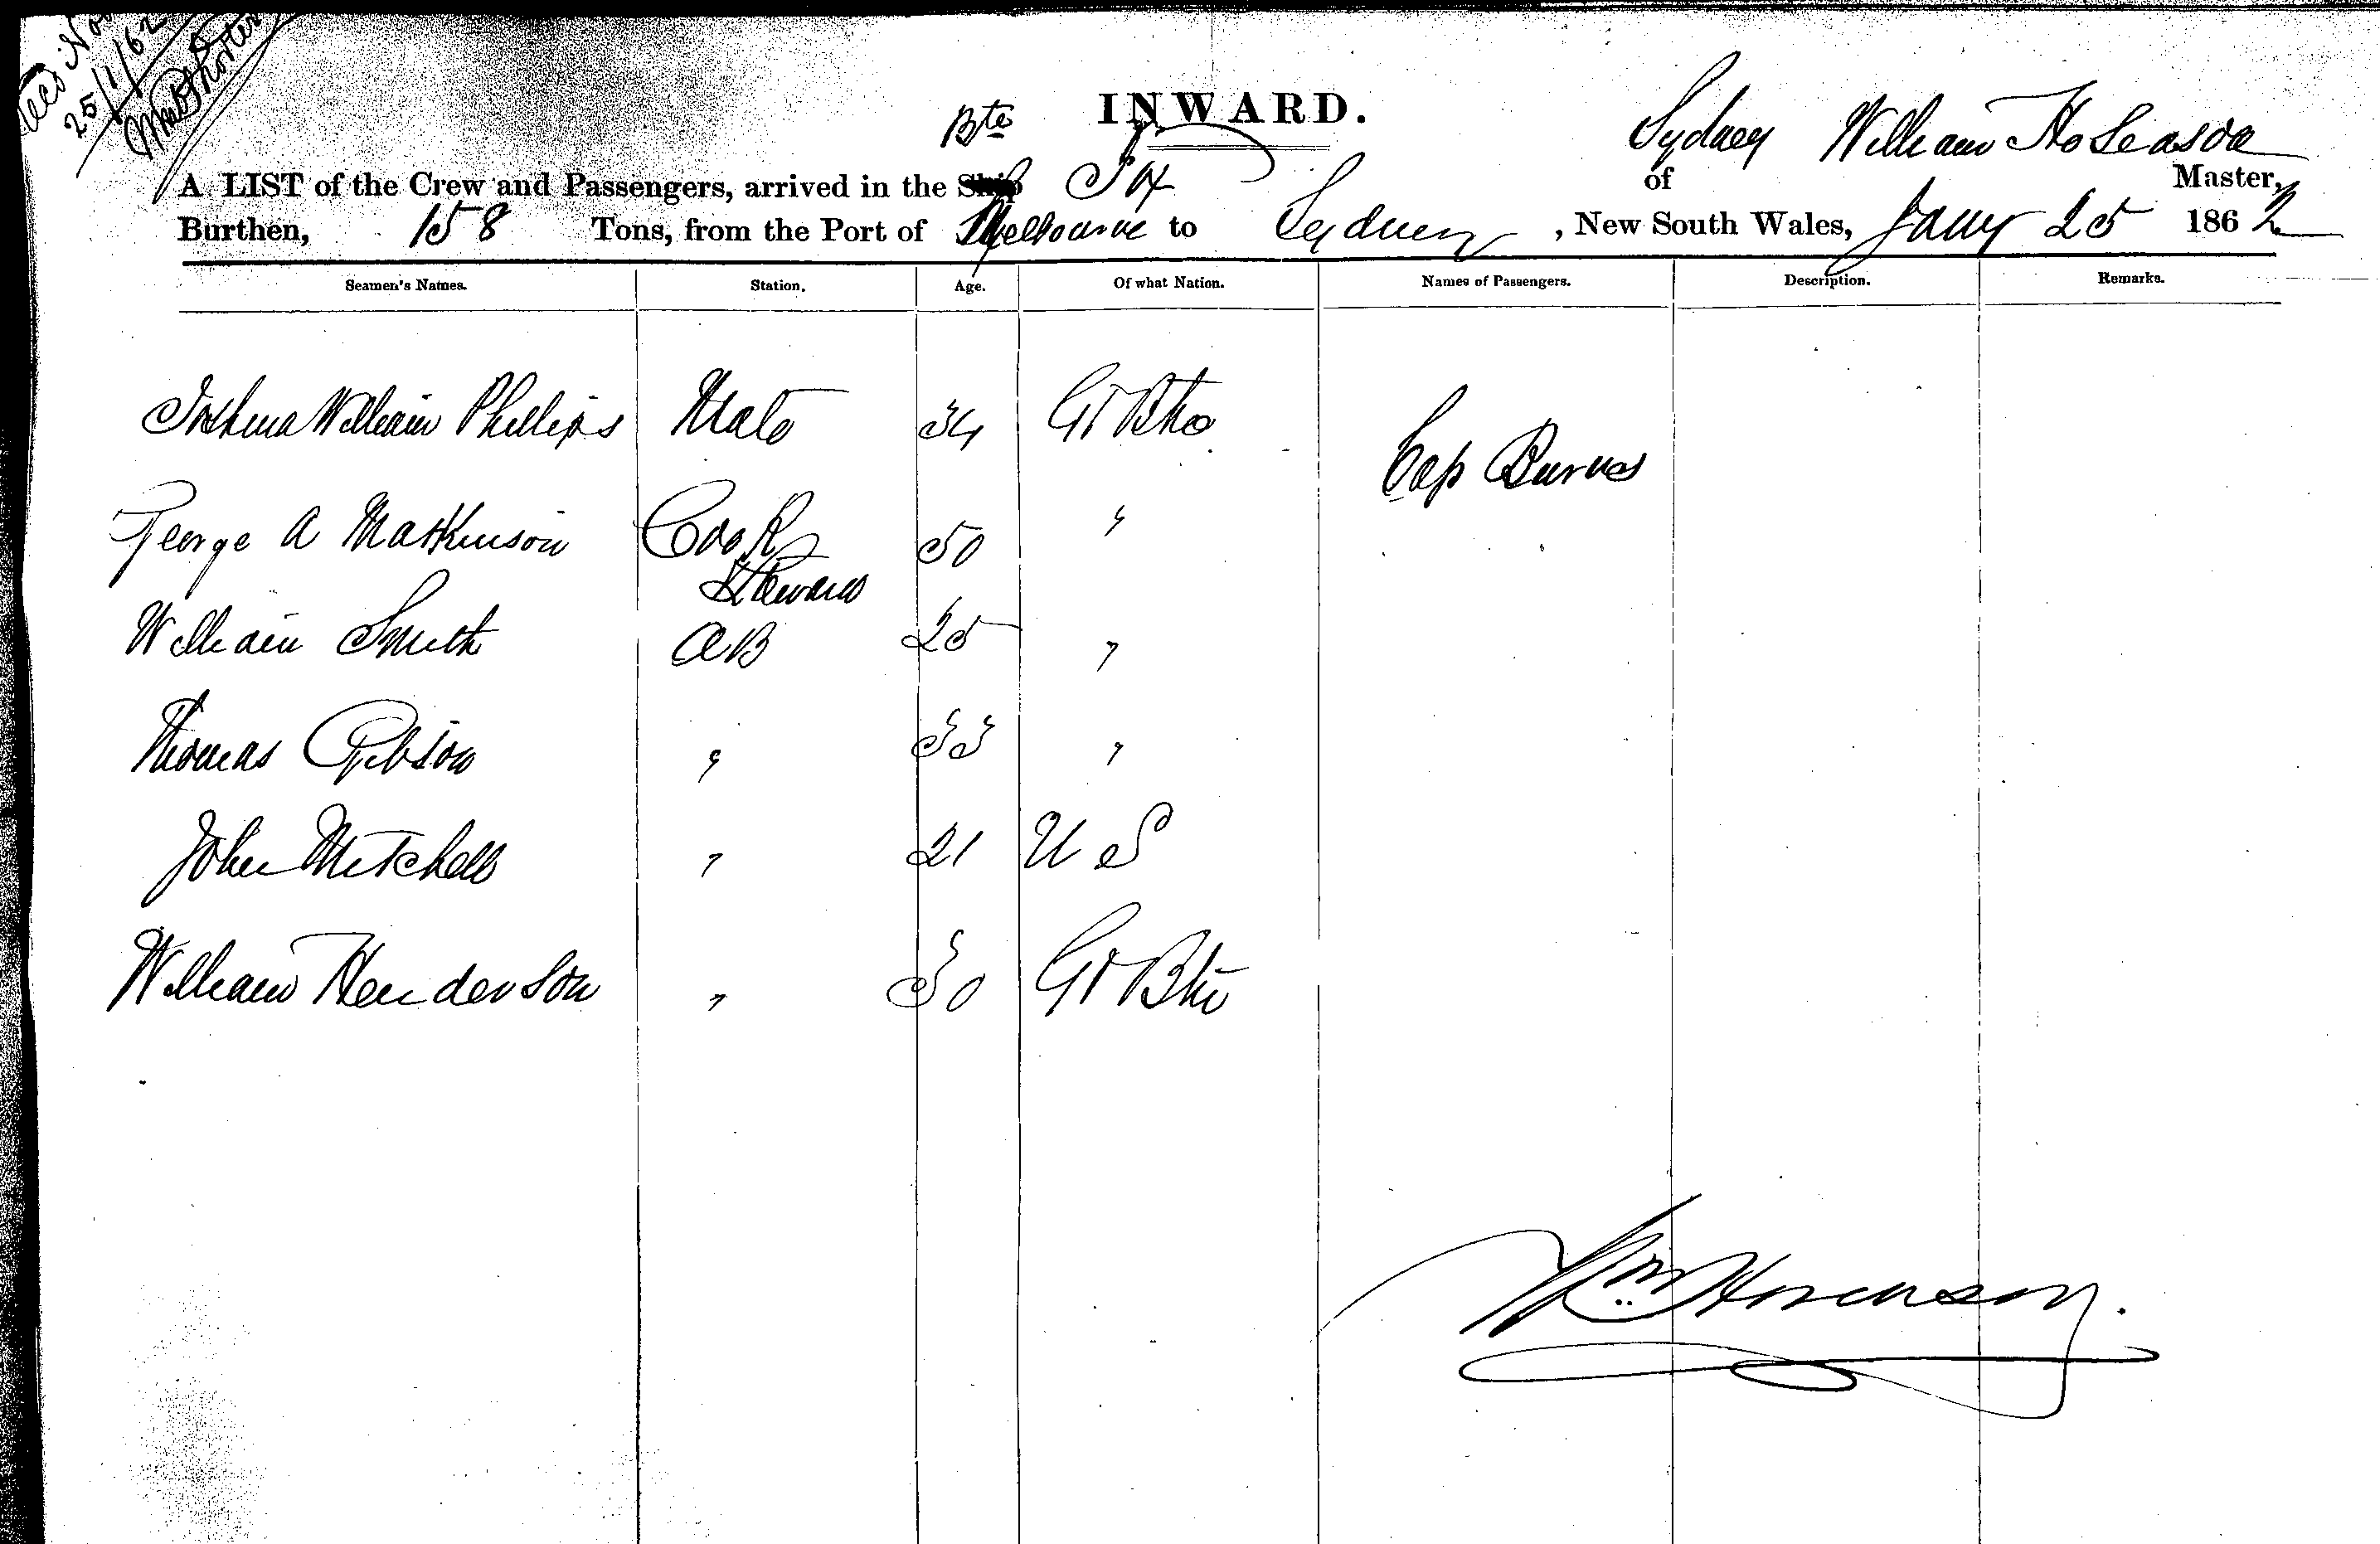 25/1/62
INWARD.
Bte Sydney William Hoseason
A LIST of the Crew and Passengers, arrived in the Ship of Master,
Burthen, 158 Tons, from the Port of Melbourne to Sydney, New South Wales, Jany 25 1862
Seamen's Names. Station. Age. Of what Nation. Names of Passengers. Description. Remarks.
Joshua William Phillips Mate 34 Gt Btn
Cap Burns
George A Matkinson Cook 50 "
Steward
William Smith AB 25 "
Thomas Gibson " 33 "
John Mitchell " 21 U S
William Henderson " 30 Gt Btn
Wm Hoseason.